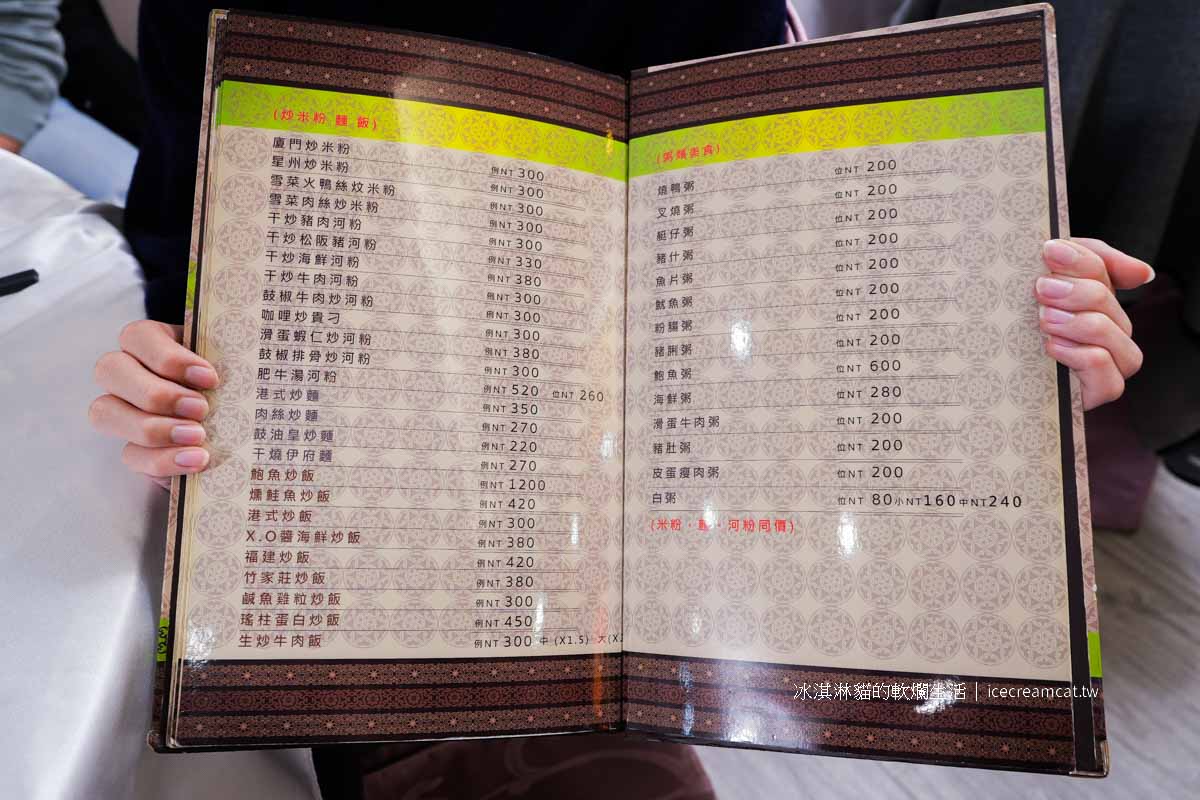 (炒米粉 麵 飯)
廈門炒米粉 例NT 300
星州炒米粉 例NT 300
雪菜火鴨絲炆米粉 例NT 300
雪菜肉絲炒米粉 例NT 300
干炒豬肉河粉 例NT 300
干炒松阪豬河粉 例NT 330
干炒海鮮河粉 例NT 380
干炒牛肉河粉 例NT 300
鼓椒牛肉炒河粉 例NT 300
咖哩炒貴刁 例NT 300
滑蛋蝦仁炒河粉 例NT 380
鼓椒排骨炒河粉 例NT 300
肥牛湯河粉 例NT 520 位NT 260
港式炒麵 例NT 350
肉絲炒麵 例NT 270
鼓油皇炒麵 例NT 220
干燒伊府麵 例NT 270
鮑魚炒飯 例NT 1200
燻鮭魚炒飯 例NT 420
港式炒飯 例NT 300
X.O醬海鮮炒飯 例NT 380
福建炒飯 例NT 420
竹家莊炒飯 例NT 380
鹹魚雞粒炒飯 例NT 300
瑤柱蛋白炒飯 例NT 450
生炒牛肉飯 例NT 300 中 (X1.5) 大(X
(粥類美食)
燒鴨粥 位NT 200
叉燒粥 位NT 200
艇仔粥 位NT 200
豬什粥 位NT 200
魚片粥 位NT 200
魷魚粥 位NT 200
粉腸粥 位NT 200
豬脷粥 位NT 200
鮑魚粥 位NT 600
海鮮粥 位NT 280
滑蛋牛肉粥 位NT 200
豬肚粥 位NT 200
皮蛋瘦肉粥 位NT 200
白粥 位NT 80 小NT 160 中NT 240
(米粉．麵．河粉同價)
冰淇淋貓的軟爛生活｜icecreamcat.tw